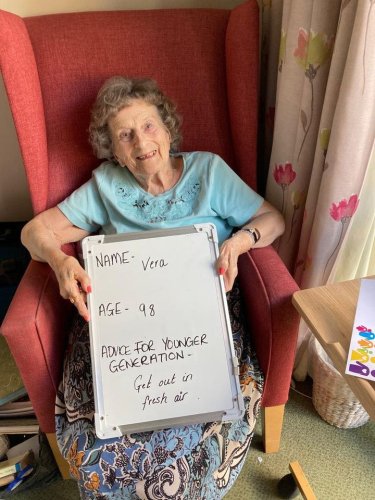 NAME- Vera
AGE- 98
ADVICE FOR YOUNGER
GENERATION-
Get out in
fresh air.